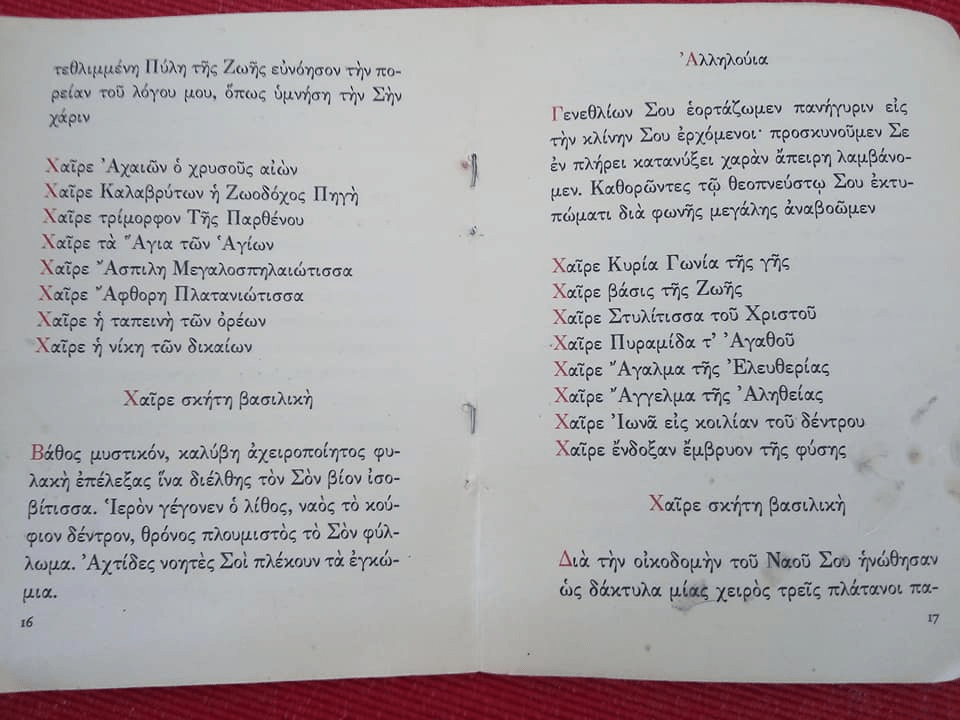 τεθλιμμένη Πύλη τῆς Ζωῆς εὐνόησον τὴν πο-
ρείαν τοῦ λόγου μου, ὅπως ὑμνήση τὴν Σὴν
χάριν
Χαῖρε Ἀχαιῶν ὁ χρυσοῦς αἰών
Χαῖρε Καλαβρύτων ἡ Ζωοδόχος Πηγὴ
Χαῖρε τρίμορφον Τῆς Παρθένου
Χαῖρε τὰ Ἅγια τῶν Ἁγίων
Χαῖρε Ἄσπιλη Μεγαλοσπηλαιώτισσα
Χαῖρε Ἄφθορη Πλατανιώτισσα
Χαῖρε ἡ ταπεινὴ τῶν ὀρέων
Χαῖρε ἡ νίκη τῶν δικαίων
Χαῖρε σκήτη βασιλικὴ
Βάθος μυστικόν, καλύβη ἀχειροποίητος φυ-
λακὴ ἐπέλεξας ἵνα διέλθης τὸν Σὸν βίον ἰσο-
βίτισσα. Ἱερὸν γέγονεν ὁ λίθος, ναὸς τὸ κού-
φιον δέντρον, θρόνος πλουμιστὸς τὸ Σὸν φύλ-
λωμα. Ἀχτίδες νοητὲς Σοὶ πλέκουν τὰ ἐγκώ-
μια.
16
Ἀλληλούια
Γενεθλίων Σου ἑορτάζωμεν πανήγυριν εἰς
τὴν κλίνην Σου ἐρχόμενοι· προσκυνοῦμεν Σε
ἐν πλήρει κατανύξει χαρὰν ἄπειρη λαμβάνο-
μεν. Καθορῶντες τῷ θεοπνεύστῳ Σου ἐκτυ-
πώματι διὰ φωνῆς μεγάλης ἀναβοῶμεν
Χαῖρε Κυρία Γωνία τῆς γῆς
Χαῖρε βάσις τῆς Ζωῆς
Χαῖρε Στυλίτισσα τοῦ Χριστοῦ
Χαῖρε Πυραμίδα τ’ Ἀγαθοῦ
Χαῖρε Ἄγαλμα τῆς Ἐλευθερίας
Χαῖρε Ἄγγελμα τῆς Ἀληθείας
Χαῖρε Ἰωνᾶ εἰς κοιλίαν τοῦ δέντρου
Χαῖρε ἔνδοξαν ἔμβρυον τῆς φύσης
Χαῖρε σκήτη βασιλικὴ
Διὰ τὴν οἰκοδομὴν τοῦ Ναοῦ Σου ἡνώθησαν
ὡς δάκτυλα μίας χειρὸς τρεῖς πλάτανοι πα-
17